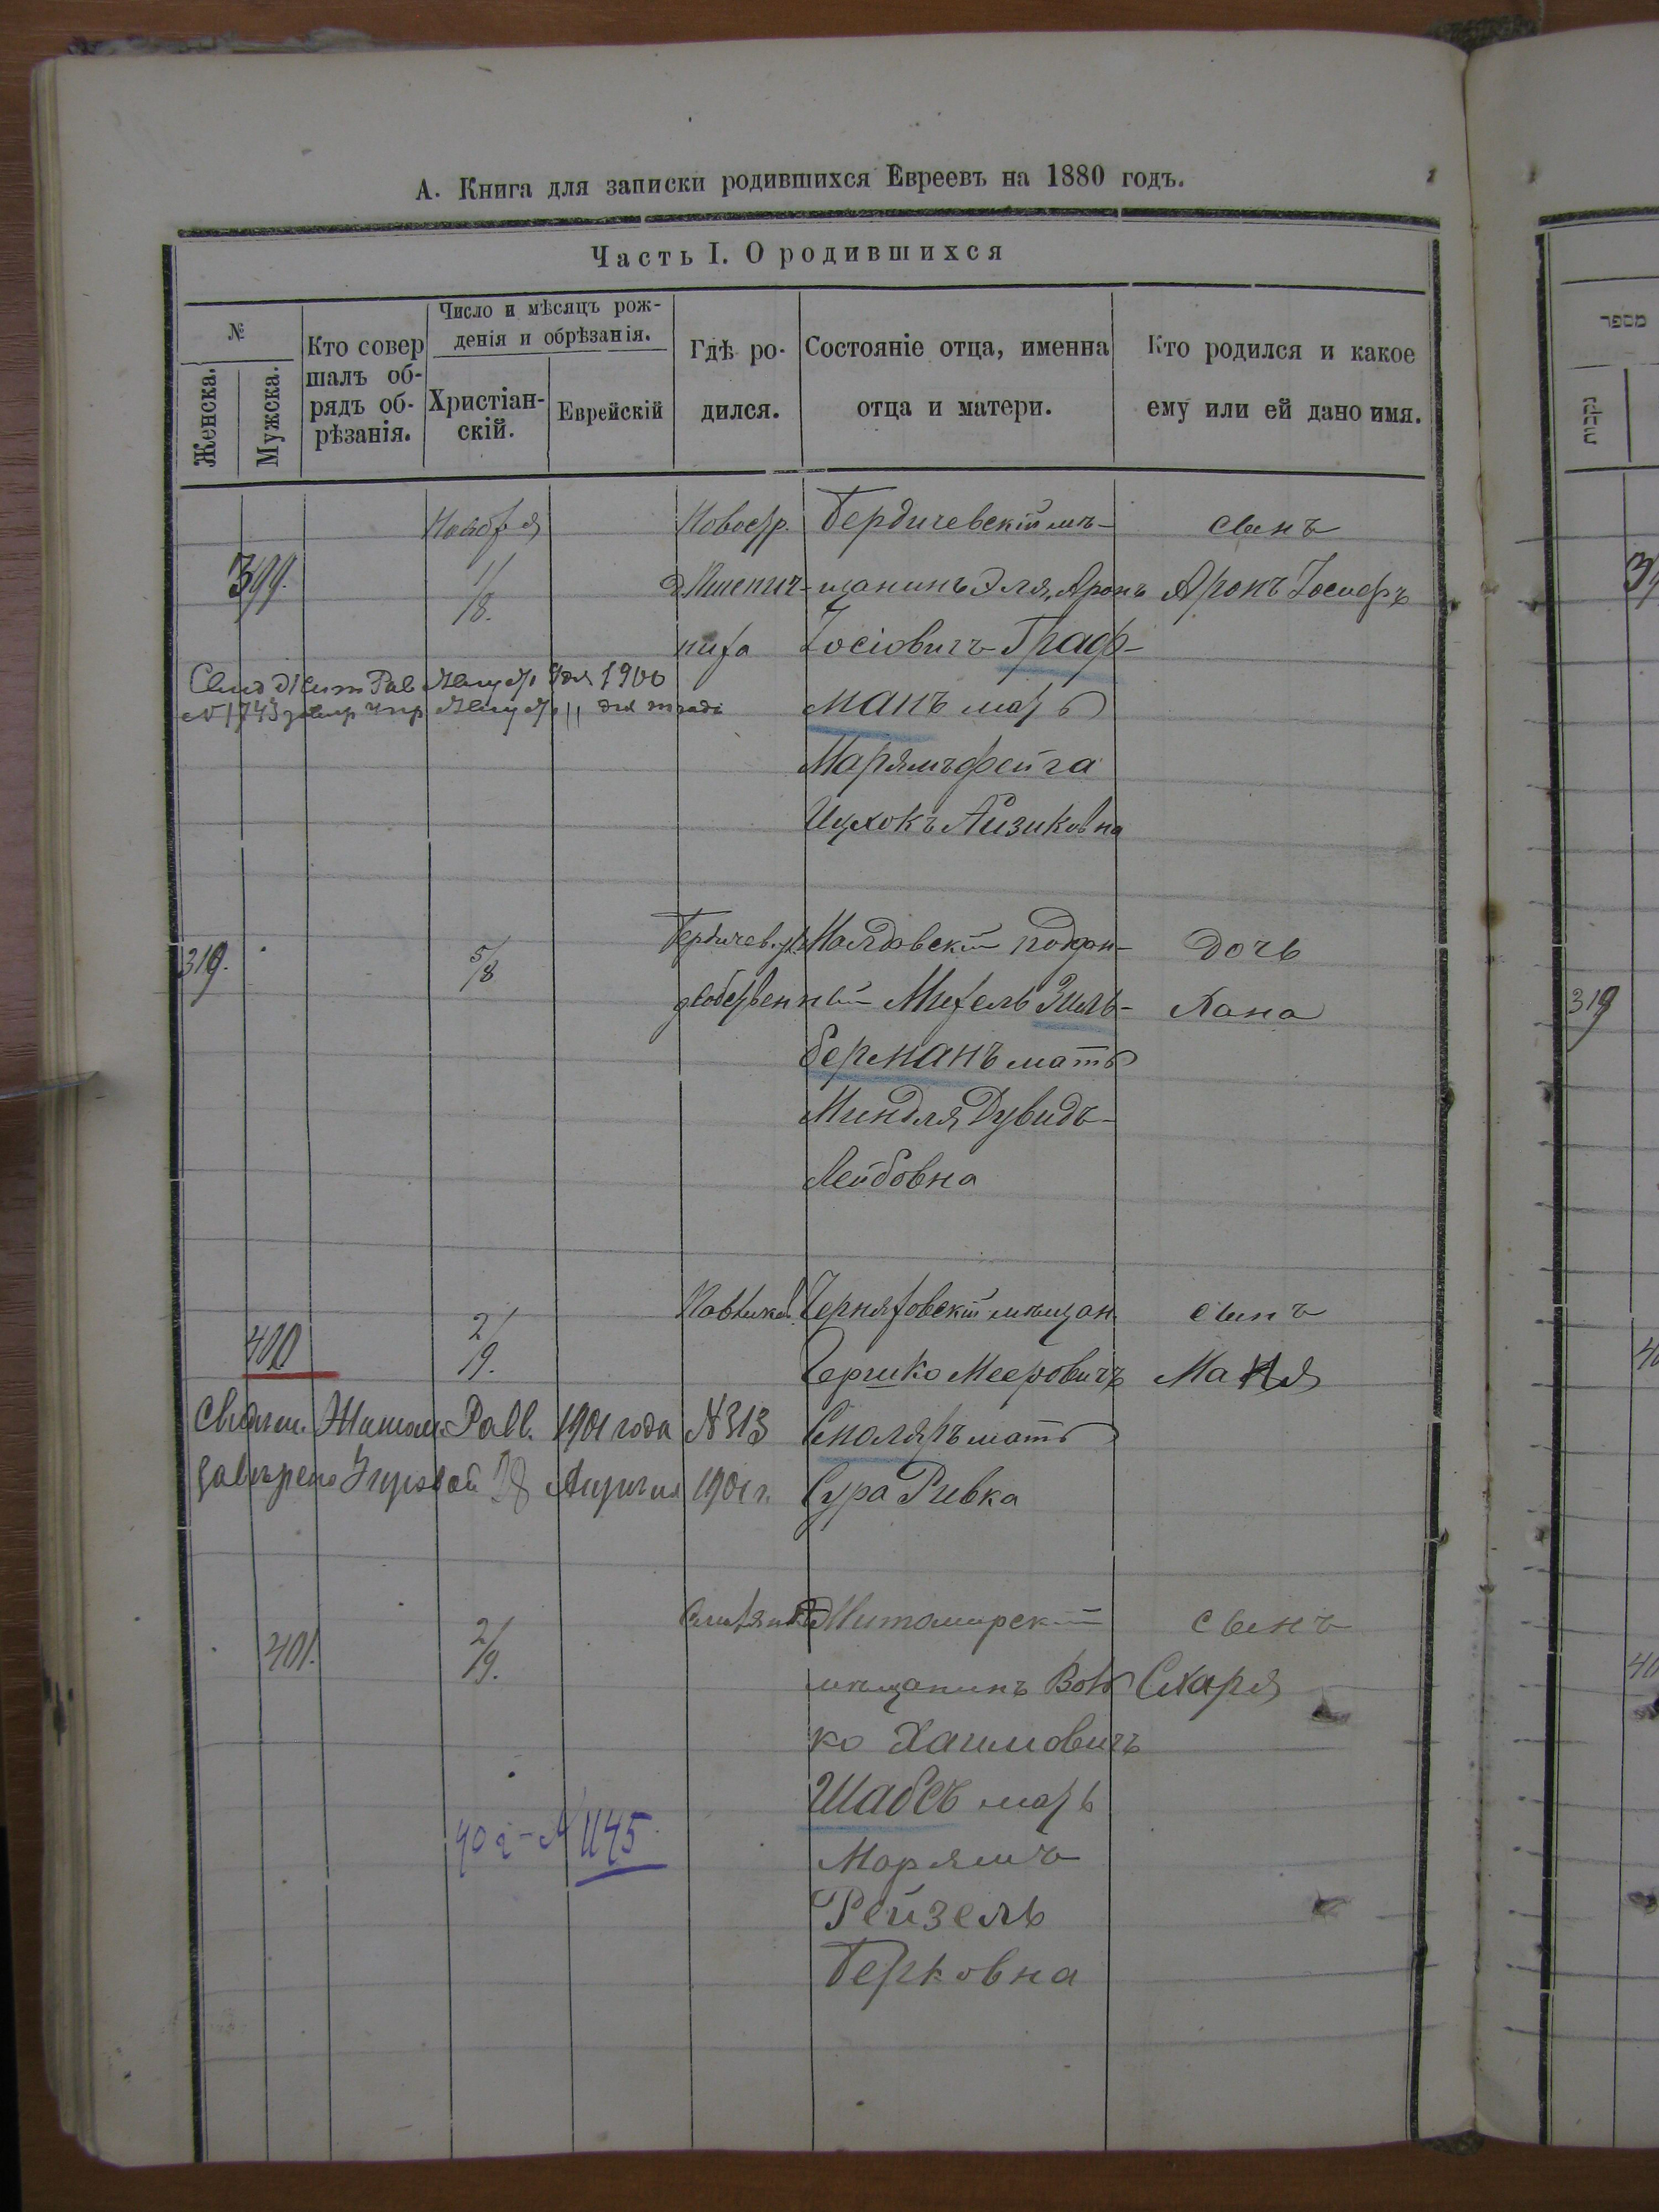 А. Книга для записки родившихся Евреевъ на 1880 годъ.
Часть I. О родившихся
№
Женска.
Мужска.
Кто совер
шалъ об-
рядъ об-
рѣзанія.
Число и мѣсяцъ рож-
денія и обрѣзанія.
Христіан-
скій.
Еврейскій
Гдѣ ро-
дился.
Состояніе отца, именна
отца и матери.
Кто родился и какое
ему или ей дано имя.
Ноября
399.
1/8.
Бердичевскій мѣ-
щанинъ Эля, Аронъ
Іосіовичъ Граф-
манъ мать
Марямъ Фейга
Ицхокъ Айзиковна
сынъ
Аронъ Іосифъ
1900
№ 1743
319.
5/8
Бердичев. ул.
Молдовскій поддан-
ный Михель Зиль-
берманъ мать
Миндля Дувидъ-
Лейбовна
дочь
Хана
400
2/9.
Черняховскій мѣщан.
Гершко Мееровичъ
Столяръ мать
Сура Ривка
сынъ
Маня
Свидѣт. Житом. Равв. 1901 года № 313
завѣрено Управой 28 Апрѣля 1901 г.
401.
2/9.
Житомирскій
мѣщанинъ Воль
ко Хаимовичъ
Шабсъ мать
Марямъ
Рейзель
Берковна
сынъ
Схаря
№ 1145
מספר
נקבות
319